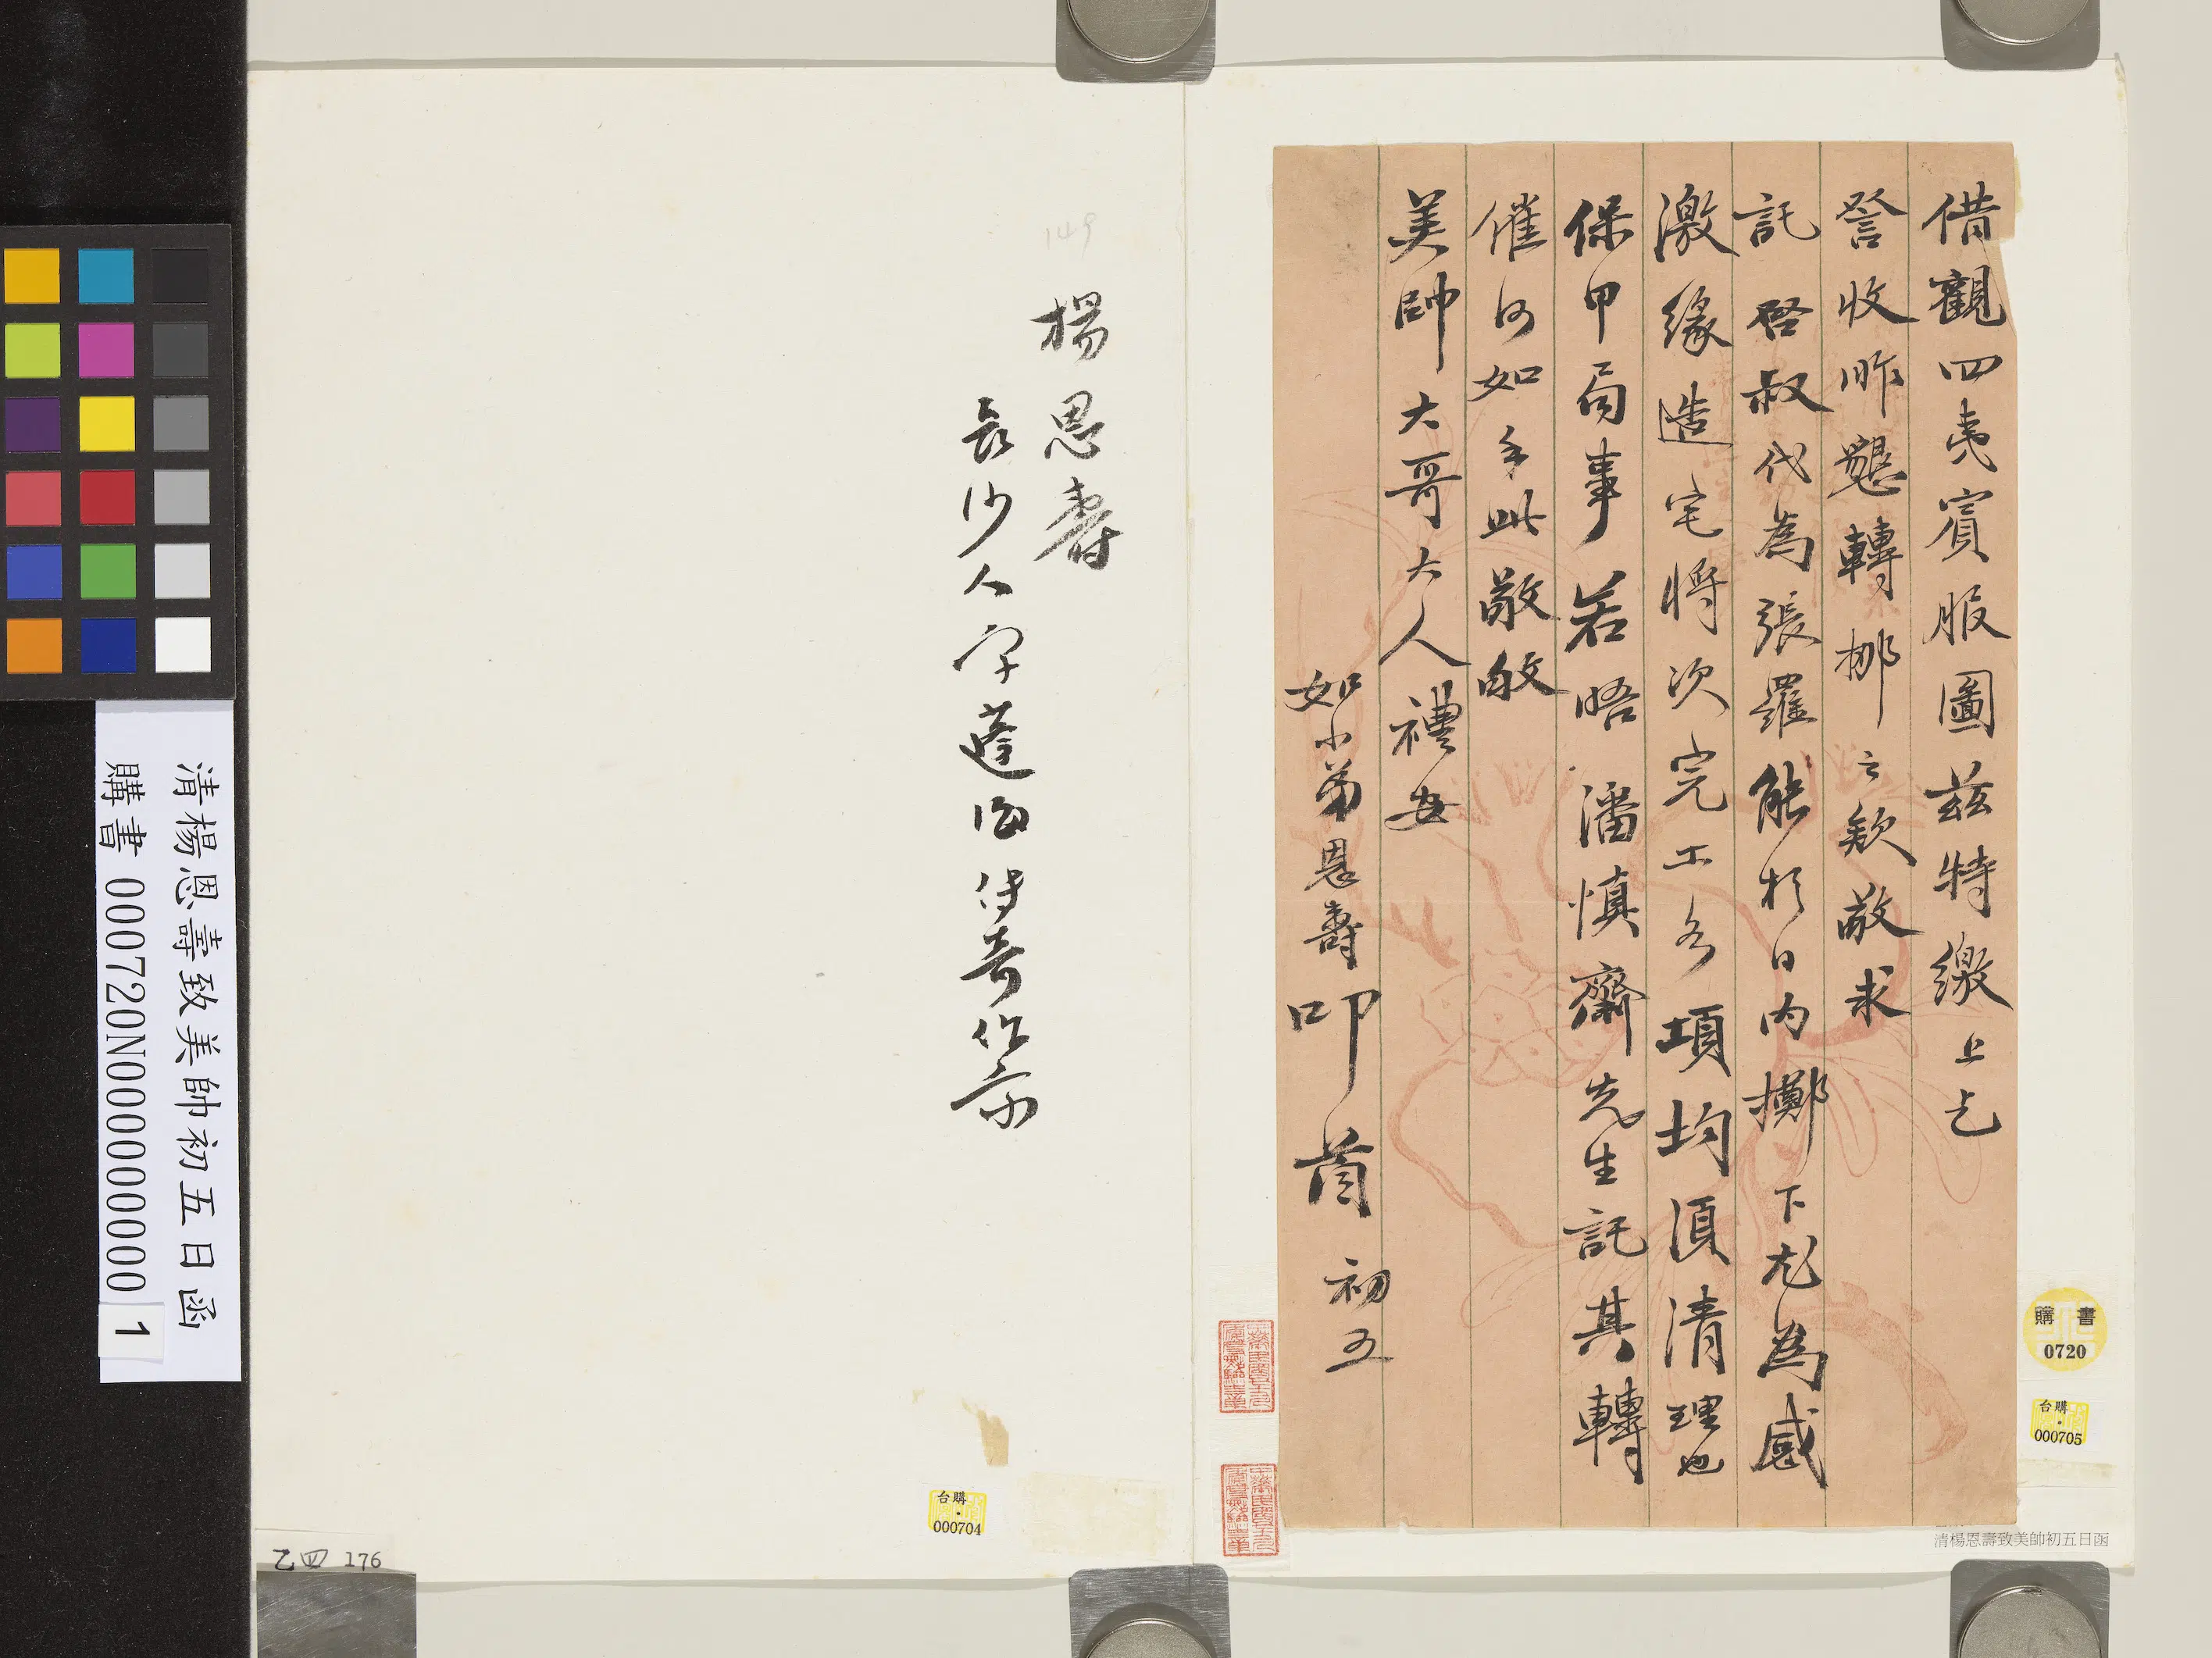 借觀四夷賓服圖茲特繳上乞
詧收昨懇轉挪之款敬求
託啓叔代為張羅能於日內擲下尤為感
激緣造宅將次完工各項均須清理也
保甲局事若晤潘慎齋先生託其轉
催何如手此敬啟
美帥大哥大人禮安
如小弟恩壽叩首初五
149
楊恩壽
長沙人字蓬海傳奇作家
清楊恩壽致美帥初五日函
購書 000720N000000000 1
購書
0720
台購
000705
台購
000704
乙四 176
清楊恩壽致美帥初五日函